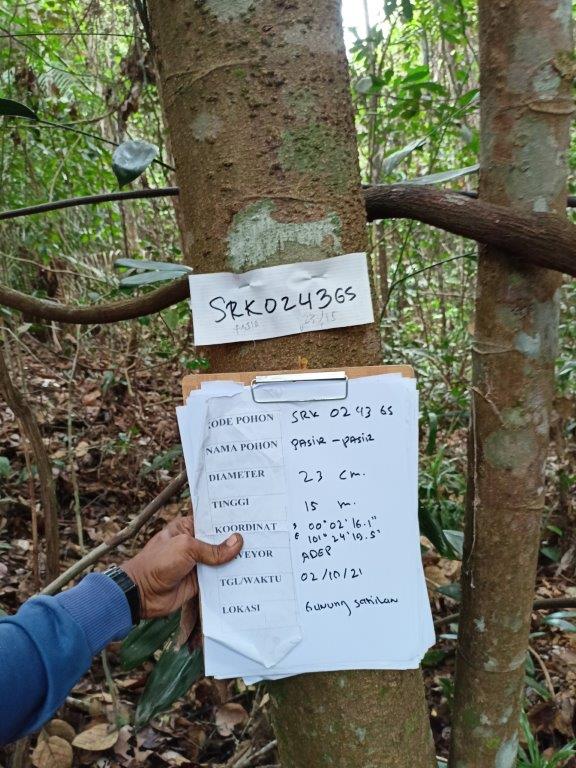 SRK0243GS
KODE POHON SRK 0243 GS
NAMA POHON PASIR-PASIR
DIAMETER 23 cm.
TINGGI 15 m.
KOORDINAT 00°02'16.1"
E 101°24'19.5"
VEYOR ADEP
TGL/WAKTU 02/10/21
LOKASI Gunung sahilan